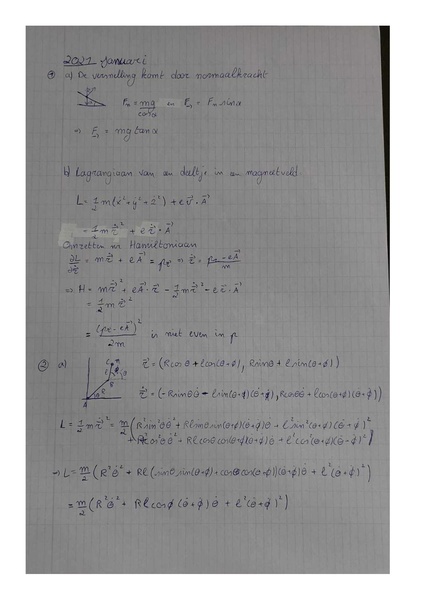 2021 Januari
① a) De versnelling komt door normaalkracht
Fₙ = mg/cosα en F→ = Fₙ sinα
⇒ F→ = mg tanα
b) Lagrangiaan van een deeltje in een magneetveld
L = 1/2 m(ẋ² + ẏ² + ż²) + e v⃗ · A⃗
= 1/2 m ṙ⃗² + e ṙ⃗ · A⃗
Omzetten in Hamiltoniaan
∂L/∂ṙ = m ṙ⃗ + e A⃗ = pᵣ ⇒ ṙ⃗ = (pᵣ - eA⃗)/m
⇒ H = m ṙ⃗² + e A⃗ · ṙ⃗ - 1/2 m ṙ⃗² - e v⃗ · A⃗
= 1/2 m ṙ⃗²
= (pᵣ - eA⃗)²/2m is niet even in p
② a) r⃗ = (R cosθ + l cos(θ+ϕ), R sinθ + l sin(θ+ϕ))
A R B l C
ṙ⃗ = (-R sinθ θ̇ - l sin(θ+ϕ)(θ̇+ϕ̇), R cosθ θ̇ + l cos(θ+ϕ)(θ̇+ϕ̇))
L = 1/2 m ṙ⃗² = m/2 (R² sin²θ θ̇² + Rl sinθ sin(θ+ϕ)(θ̇+ϕ̇)θ̇ + l² sin²(θ+ϕ)(θ̇+ϕ̇)²
+ R² cos²θ θ̇² + Rl cosθ cos(θ+ϕ)(θ̇+ϕ̇)θ̇ + l² cos²(θ+ϕ)(θ̇+ϕ̇)²)
⇒ L = m/2 (R² θ̇² + Rl (sinθ sin(θ+ϕ) + cosθ cos(θ+ϕ))(θ̇+ϕ̇)θ̇ + l² (θ̇+ϕ̇)²)
= m/2 (R² θ̇² + Rl cosϕ (θ̇+ϕ̇) θ̇ + l² (θ̇+ϕ̇)²)